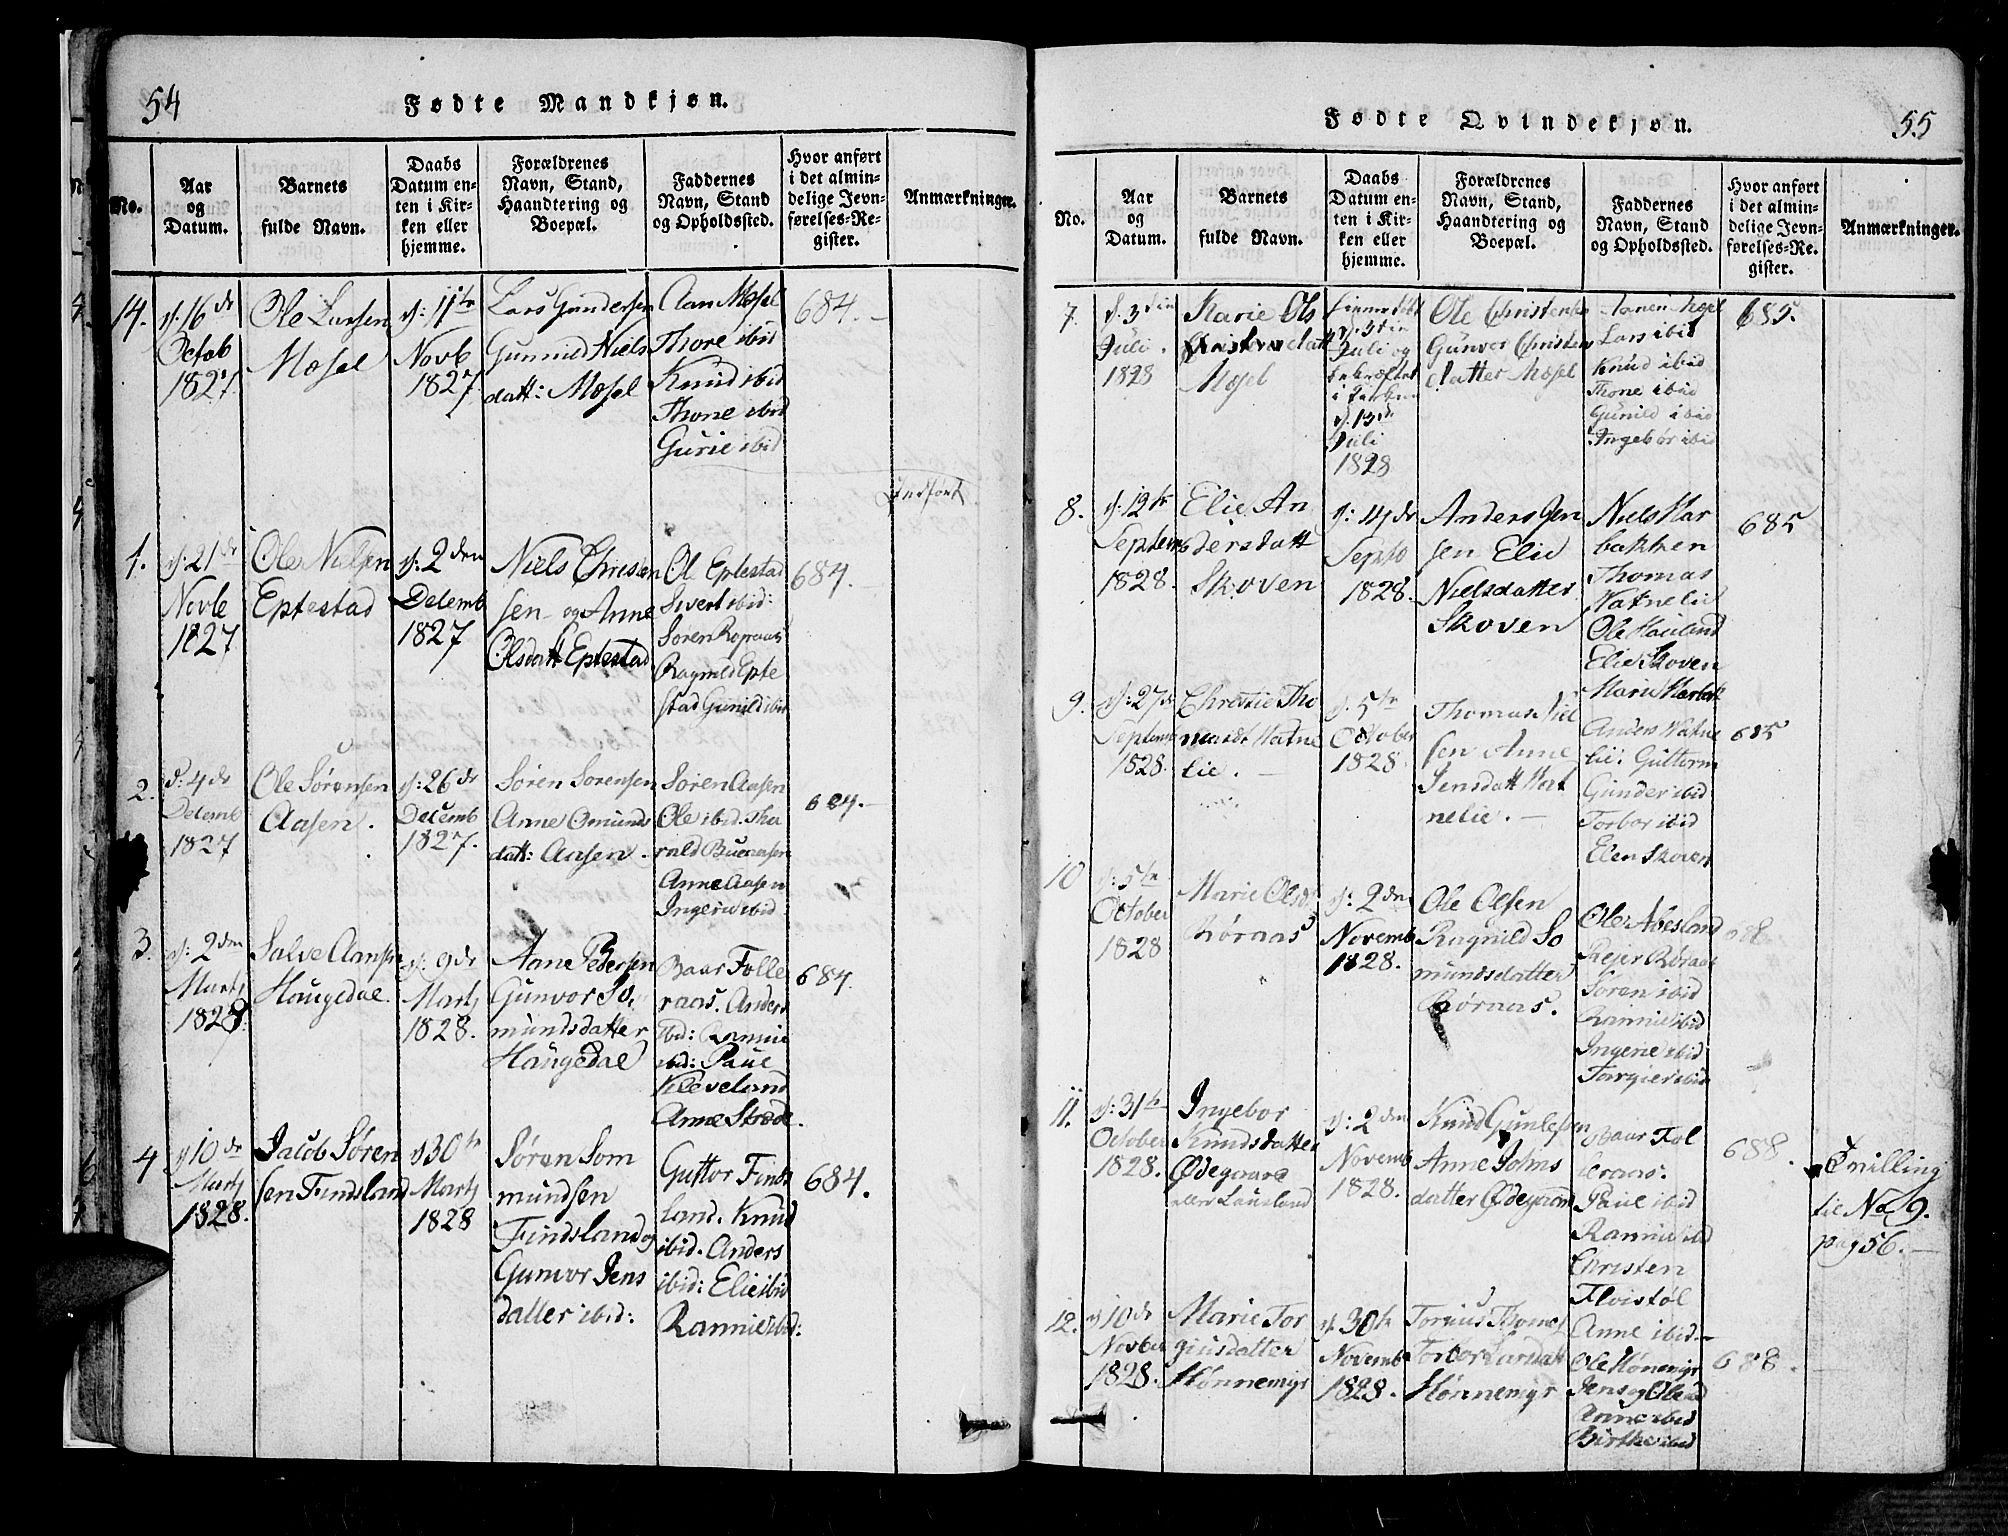 54
Fødte Mandkjøn.
No.
Aar
og
Datum.
Barnets
fulde Navn.
Daabs
Datum en-
ten i Kir-
ken eller
hjemme.
Forældrenes
Navn, Stand,
Haandtering og
Boepæl.
Faddernes
Navn, Stand
og Opholdssted.
Hvor anført
i det almin-
delige Jevn-
førelses-Re-
gister.
Anmærkninger.
14.
d: 16 de
Octob
1827.
Ole Larsen
Mosel
d: 11te
Novb
1827.
Lars Gundersen
Gunnild Niels
datt: Mosel
Aan Mosel
Thore ibid
Knud ibid
Thone ibid
Gurie ibid
684.
Indført
1.
d: 21 de
Novb
1827
Ole Nielsen
Eptestad
d: 2den
Decemb
1827
Niels Christen
sen og Anne
Olsdatt Eptestad
Ol Eptestad
Sivert ibid:
Søren Roraas
Ragnild Epte
stad Gunild ibid
684.
2.
d: 4 de
Decemb
1827
Ole Sørensen
Aasen.
d: 26 de
Decemb
1827.
Søren Sorensen
Anne Omunds
datt: Aasen.
Søren Aasen
Ole ibid. Tha
rald Bueraasen
Anne Aasen
Ingerie ibid
684.
3.
d: 2den
Marts
1828.
Salve Aansen
Haugedal.
d: 9 de
Marts
1828.
Aane Pedersen
Gunvor So
mundsdatter
Haugedal
Baar Folle
raas. Anders
ibid: Rannie
ibid: Paul
Kleveland
Anne Strøde.
684.
4
d 10 de
Marts
1828.
Jacob Søren
sen Findsland
d 30te
Marts
1828
Søren Som
mundsen
Findsland og
Gunvor Jens
datter ibid:
Guttor Finds
land. Knud
ibid. Anders
ibid: Elie ibid
Rannie ibid:
684.
55
Fødte Qvindekjøn.
No.
Aar
og
Datum.
Barnets
fulde Navn.
Daabs
Datum en-
ten i Kir-
ken eller
hjemme.
Forældrenes
Navn, Stand,
Haandtering og
Boepæl.
Faddernes
Navn, Stand
og Opholdssted.
Hvor anført
i det almin-
delige Jevn-
førelses-Re-
gister.
Anmærkninger.
7.
d. 3die
Juli.
1828
Marie Ols
datt
Mosel
hiemmedøbt
d. 3die
Juli og
bekræftet
i Kirken
d. 13de
Juli
1828
Ole Christensen
Gunvor Christens
datter Mosel
Aanen Mosel
Lars ibid
Knud ibid
Thone ibid
Gunild ibid
Ingebor ibid
685.
8.
d: 12te
Septemb
1828.
Elie An
dersdatt
Skoven
d: 14 de
Septb
1828.
Anders Jen
sen Elie
Nielsdatter
Skoven
Niels Har
bakken
Thomas
Vatnelie
Ole Hauland
Elie Skoven
Marie Harbak
685
9.
d: 27 de
Septemb
1828.
Christie Tho
masdt Vatne
lie.
d. 5te
October
1828.
Thomas Niel
sen Anne
Jensdatt Vat
nelie.
Anders Vatne
lie: Guttorm
Gunder ibid
Torbor ibid
Elen Skoven
685
10
d: 5te
October
1828
Marie Olsdt
Røraas
d: 2den
Novemb
1828.
Ole Olsen
Ragnild So
mundsdatter
Røraas.
Ole Abesland
Reier Røraas
Søren ibid
Rannie ibid
Ingerie ibid
Torgier ibid
688
11.
d: 31te
October
1828.
Ingebor
Knudsdatter
Ødegaard
eller Lausland
d: 2den
Novemb
1828.
Knud Gunlefsen
Anne Johns
datter Ødegaard
Baar Fol
leraas:
Paul ibid
Rannie ibid
Christen
Flvistøl
Anne ibid.
688.
Tvilling
til No 9.
pag 56.
12.
d 10 de
Novber
1828.
Marie Tor
giusdatter
Hønnemyr
d. 30te
Novemb
1828.
Torgius Thomes
Torbor Larsdatt
Hønnemyr
Ole Hønemyr
Jens og Ole ibid
Anne ibid
Birthe ibid
688.